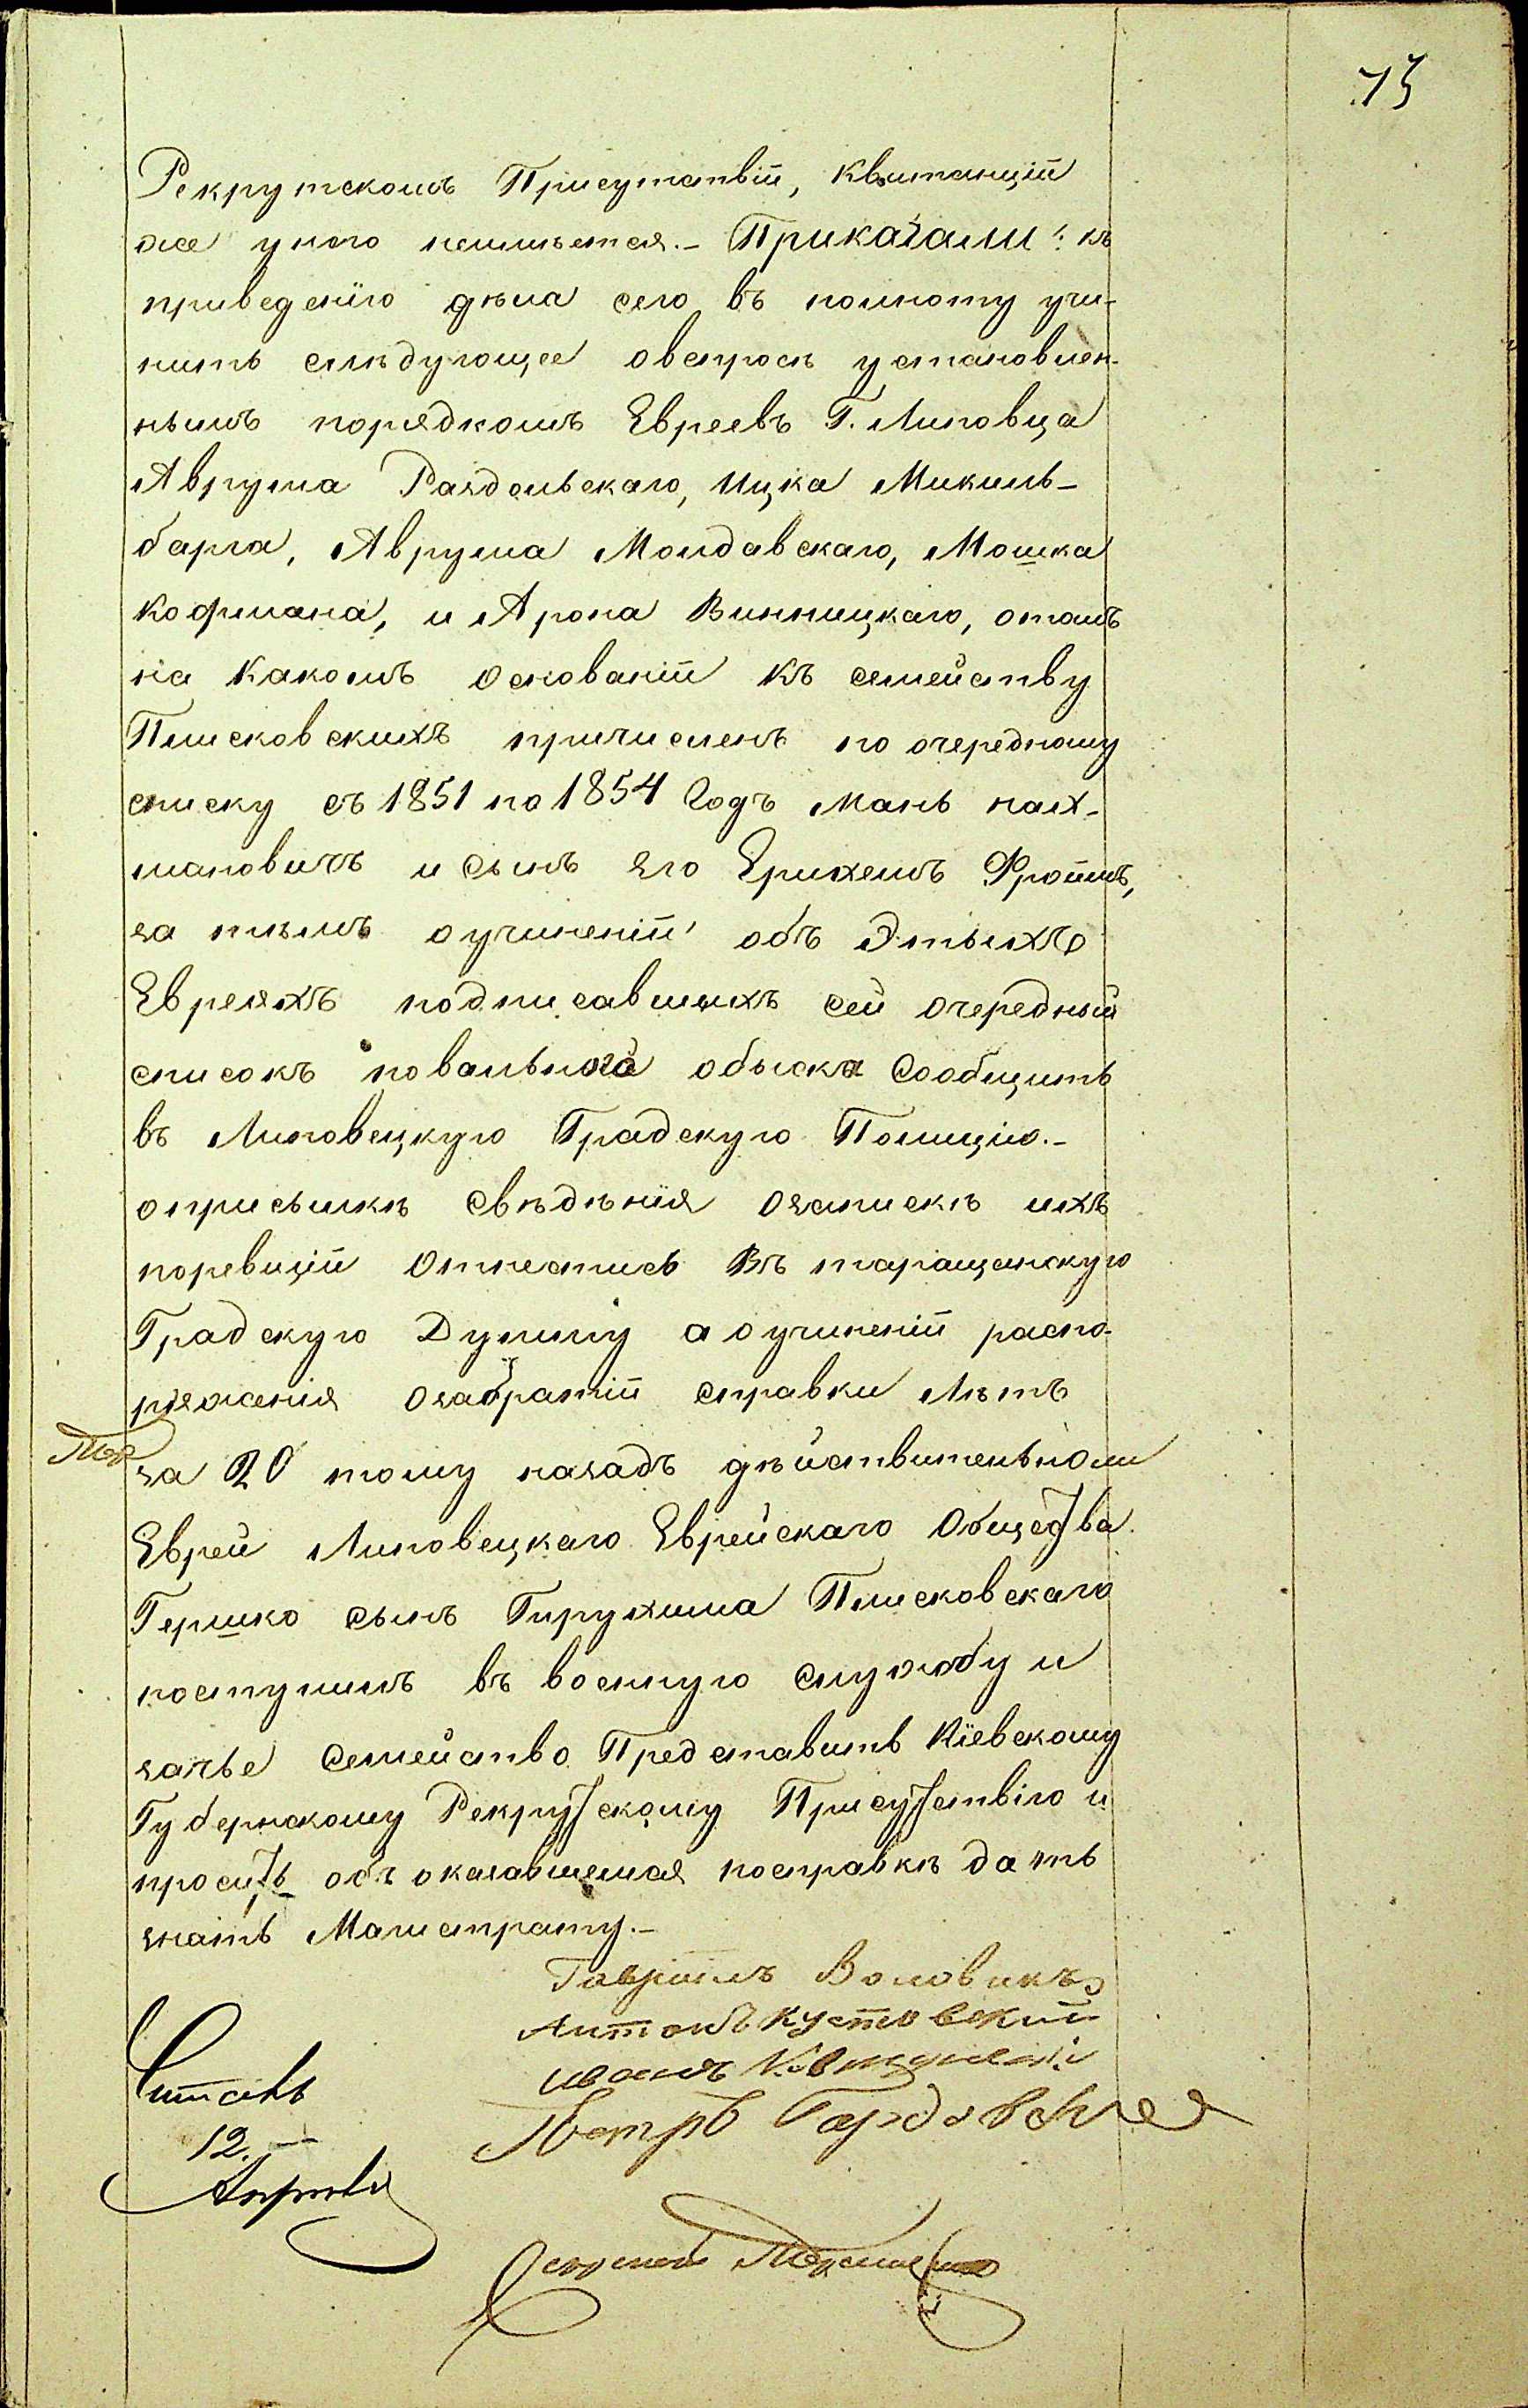 75
Рекрутскомъ Присутствіи, Квитанціи
же у него неимѣется. - Приказали: къ
приведенію дѣла сего въ полноту учи-
нить слѣдующее овспросѣ установлен-
нымъ порядкомъ Евреевъ Г. Липовца
Аврума Раздольскаго, Ицка Микиль-
барга, Аврума Молдавскаго, Мошка
Кофмана, и Арона Винницкаго, отомъ
на какомъ основаніи къ семейству
Плисковскихъ причисленъ по очередному
списку съ 1851 по 1854 годъ Мань нах-
мановичъ и сынъ его Ерихемъ Фроимъ,
за тѣмъ оучиненіи объ Этыхъ
Евреяхъ подписавшихъ сей очередный
списокъ повальнаго обыска Сообщить
въ Липовецкую Градскую Полицію. -
оприсылкѣ свѣдѣнія озапискѣ ихъ
поревизіи отнестись въ таращанскую
Градскую Думму а оучиненіи распо-
ряженія озабратіи справки Лѣтъ
за 20 тому назадъ дѣйствительноли
Еврей Липовецкаго Еврейскаго Общества
Гершко сынъ Гирухима Плисковскаго
поступилъ въ военную службу и
зачье семейство Представить Кіевскому
Губернскому Рекрутскому Присутствію и
просить объ оказавшемся посправкѣ дать
знать Магистрату. -
Гавріилъ Воловикъ
Антонъ Кустовскій
иванъ
Петръ
Читалъ
12.
Апрѣля
Секретарь